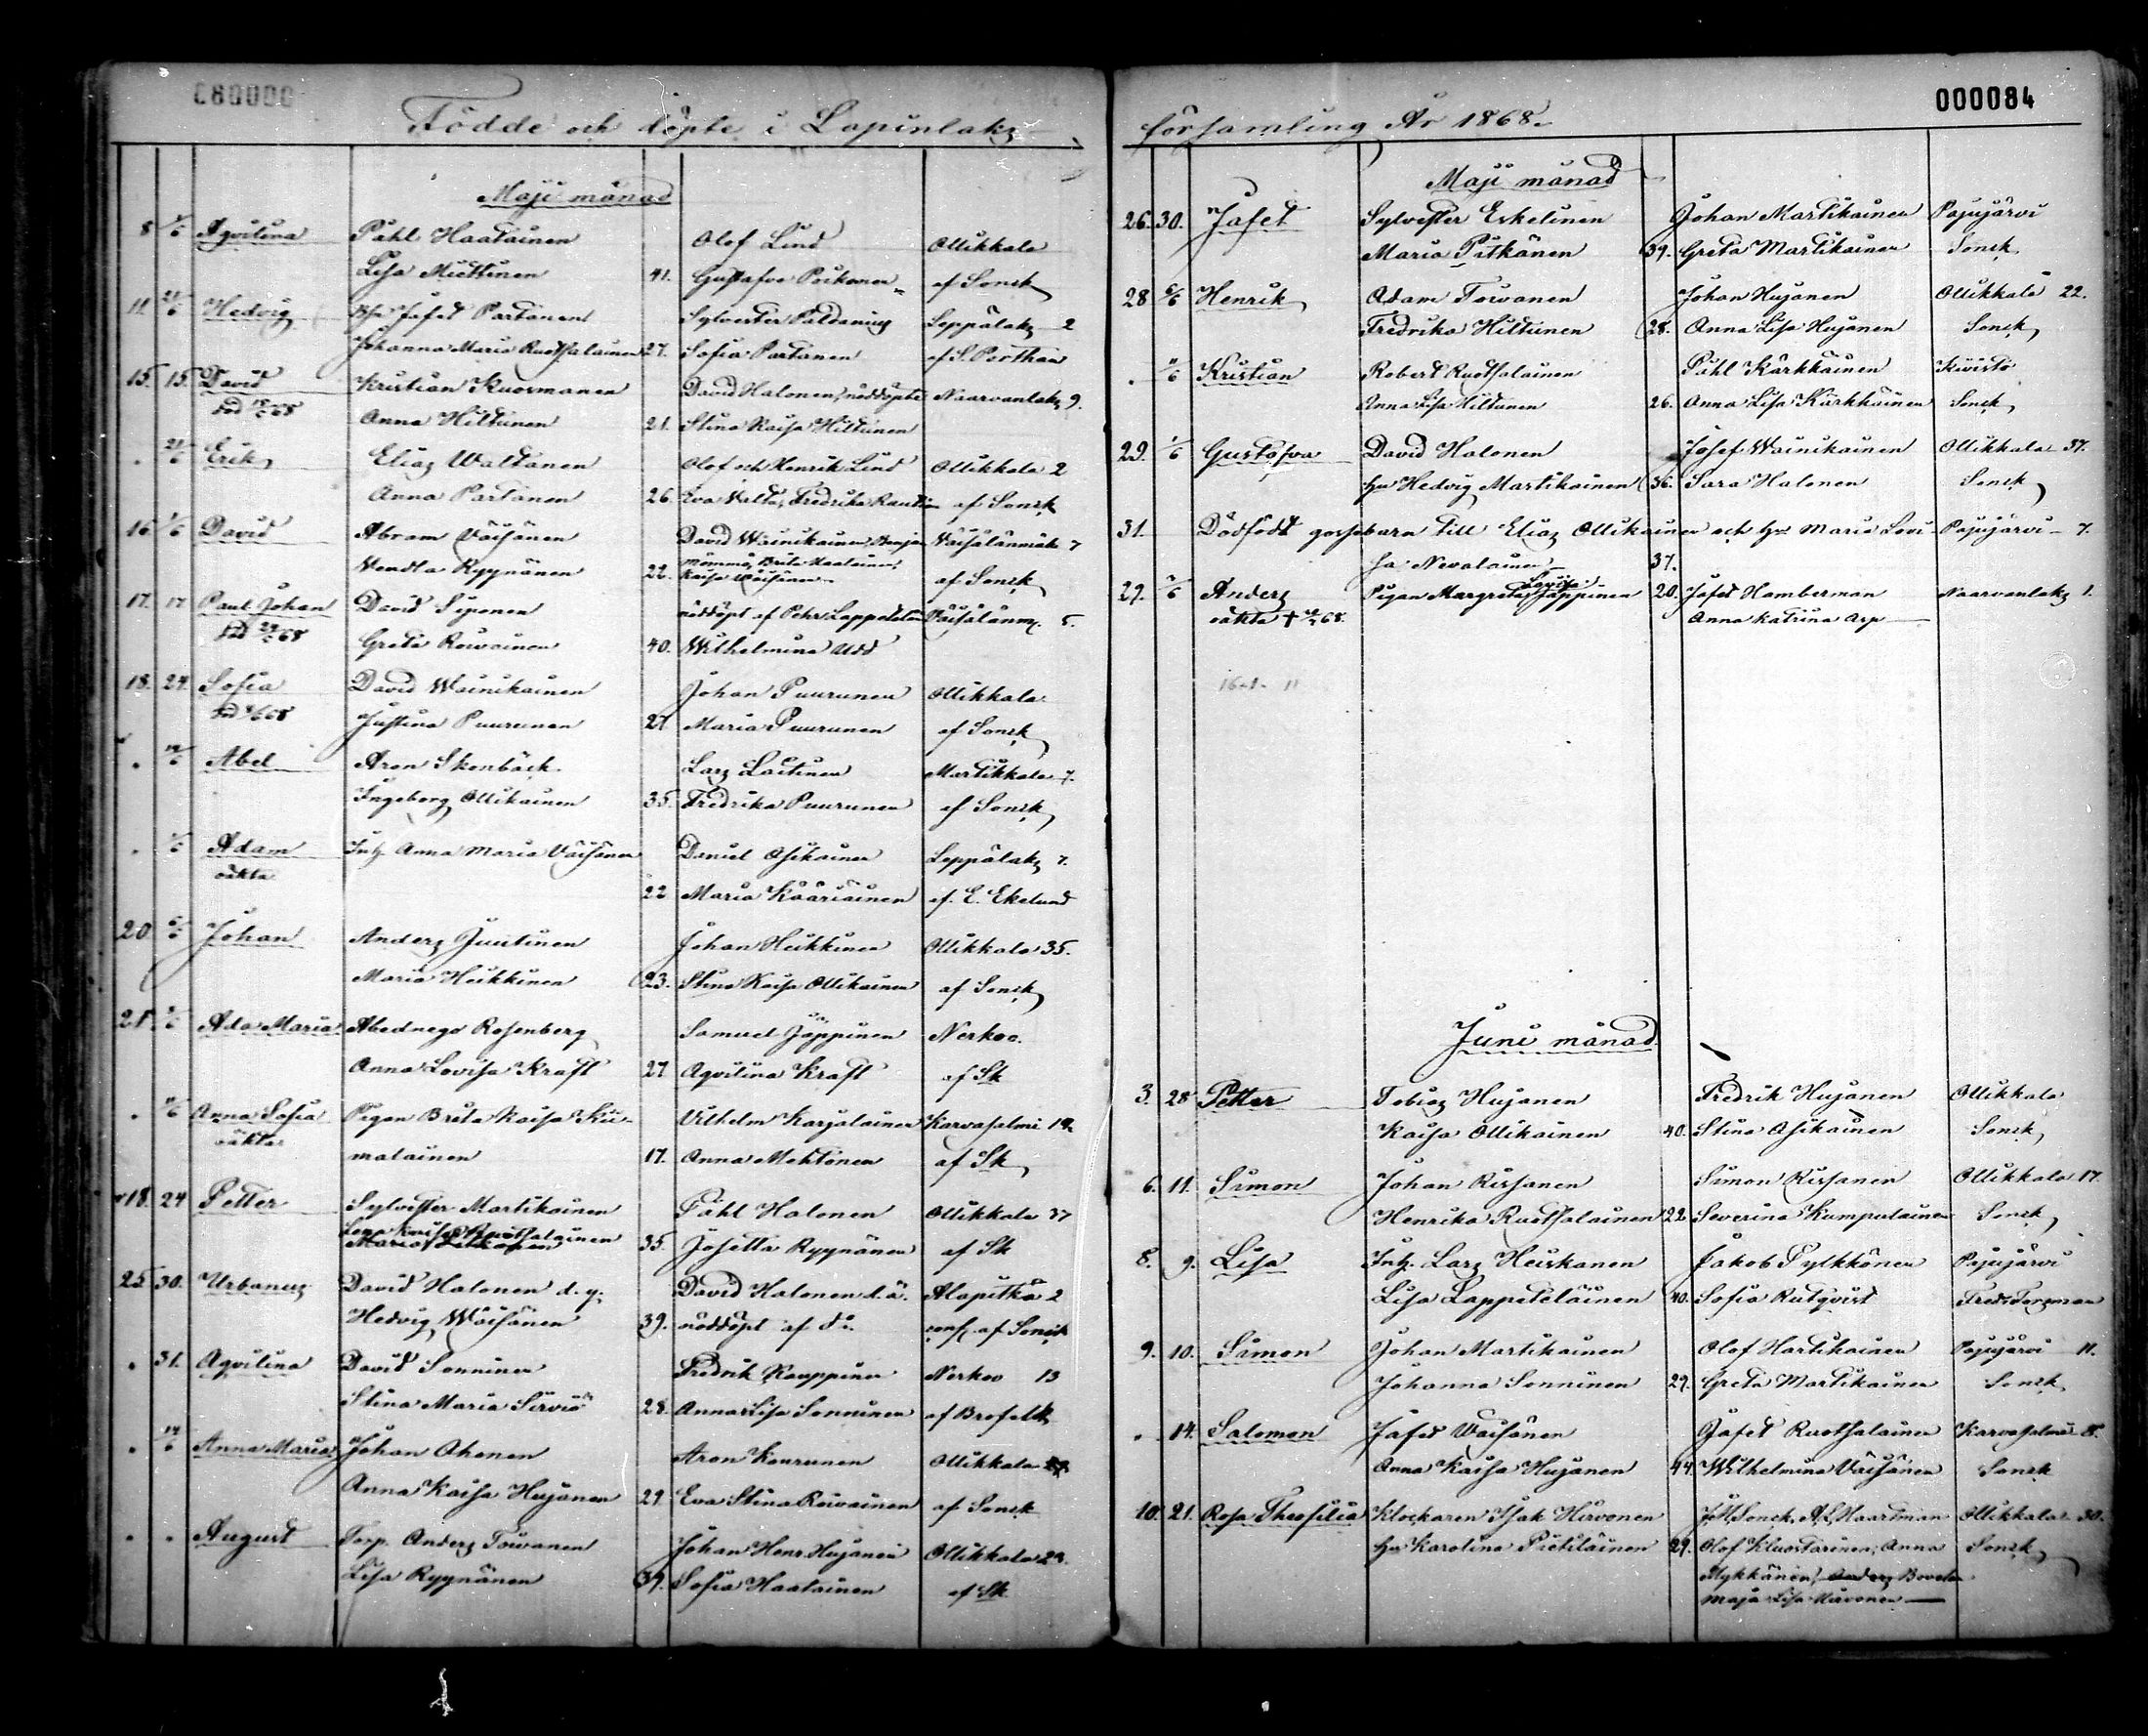 000084
Födde och döpte i Lapinlaks
församling År 1868.
Maji månad
8 Aqvilina Påhl Haatainen Olof Lind Ollikkala
Lisa Miettinen 41. Gustafva af Sonck
11. Hedvig Jafet Partanen Sylvester Paldanius Leppälaks 2
Johanna Maria Ruotsalainen 27. Sofia Partanen af S. Porthan
15. 15. David Kristian Kuosmanen David Halonen, nöddöpte Naarvanlaks 9.
68 Anna Hiltunen 21. Stina Kaisa Hiltunen
Erik Elias Waltanen Olof och Henrik Lind Ollikkala 2
Anna Partanen 26. Eva Fredrika af Sonck
16. 1/6 David Abram Väisänen David Wainikainen, Väisälänmäki 7
Vendla Ryynänen 22. Brita Kaisa Väisänen af Sonck
17. 17 Paul Johan David Siponen nöddöpt af Pehr Lappeteläinen 5.
68 Greta Roivainen 40. Wilhelmina Udd
18. 24. Sofia David Wainikainen Johan Puurunen Ollikkala
68 Justina Puurunen 27 Maria Puurunen af Sonck
Abel Aron Skenbäck Lars Laitinen Martikkala 7.
Ingeborg Ollikainen 35. Fredrika Puurunen af Sonck
Adam Inh. Anna Maria Väisänen Daniel Asikainen Leppälaks 7.
oäkta
22 Maria Kääriäinen af. E. Ekelund
20 Johan Anders Juutinen Johan Heikkinen Ollikkala 35.
Maria Heikkinen 23. Stina Kaisa Ollikainen af Sonck
21. Ada Maria Abednego Rosenberg Samuel Jäppinen Nerkoo.
Anna Lovisa Kraft 27 Aqvilina Kraft af Sk
Anna Sofia Pigan Brita Kaisa Kii- Vilhelm Karjalainen Karvasalmi
oäkta malainen 17. Anna Mehtonen af Sk
18. 24 Petter Sylvester Martikainen Påhl Halonen Ollikkala 37
Lena Kaisa Ruotsalainen
35. Josetta Ryynänen af Sk
25 30. Urbanus David Halonen d. y. David Halonen d. ä. Alapitkä 2
Hedvig Wäisänen 39. nöddöpt af d:o conf. af Sonck
31. Aqvilina David Sonninen Fredrik Kauppinen Nerkoo 13
Stina Maria Sirviö 28. Anna Lisa Sonninen af Brofeldt
14/6 Anna Maria Johan Ahonen Aron Kourunen Ollikkala
Anna Kaisa Hujanen 29 Eva Stina Roivainen af Sonck
August Torp. Anders Toivanen Johan Henr. Hujanen Ollikkala 29.
Lisa Ryynänen 39. Sofia Haatainen af Sk
Maji månad
26. 30. Jafet Sylvester Eskelinen Johan Martikainen Pajujärvi
Maria Pitkänen 39. Greta Martikainen Sonck
28 6/6 Henrik Adam Toivanen Johan Hujanen Ollikkala 22.
Fredrika Hiltunen 28. Anna Lisa Hujanen Sonck
Kristian Robert Ruotsalainen Påhl Kärkkäinen Kivistö
Anna Lisa Hiltunen 26. Anna Lisa Kärkkäinen Sonck
29. 1/6 Gustafva David Halonen Josef Wainikainen Ollikkala 37.
hu Hedvig Martikainen 36. Sara Halonen Sonck
31. Dödfödt gossebarn till Elias Ollikainen och hu Maria Lovi- Pajujärvi 7.
sa Nevalainen 37.
29. Anders Pigan Margreta Lovisa Jäppinen 20. Jafet Hamberman Naarvanlaks 1.
oäkta † 68. Anna Katrina Asp
Juni månad.
3. 28 Petter Tobias Hujanen Fredrik Hujanen Ollikkala
Kaisa Ollikainen 40. Stina Asikainen Sonck
6. 11. Simon Johan Rissanen Simon Rissanen Ollikkala 17.
Henrika Ruotsalainen 22 Severina Kumpulainen Sonck
8. 9. Lisa Inh. Lars Heiskanen Jakob Pylkkönen Pajujärvi
Lisa Lappeteläinen 40. Sofia Rutqvist Fred. Forsman
9. 10. Simon Johan Martikainen Olof Hartikainen Pajujärvi 11.
Johanna Sonninen 29. Greta Martikainen Sonck
14. Salomon Jafet Väisänen Jafet Ruotsalainen Karvasalmi 8.
Anna Kaisa Hujanen 44 Wilhelmina Väisänen Sonck
10. 21. Rosa Theofilia Klockaren Isak Hirvonen Sonck, Haartman Ollikkala 30.
hu Karolina Pietiläinen 29. Olof Kluostarinen, Anna Sonck
Mykkänen, Anders
Maja Lisa Hirvonen